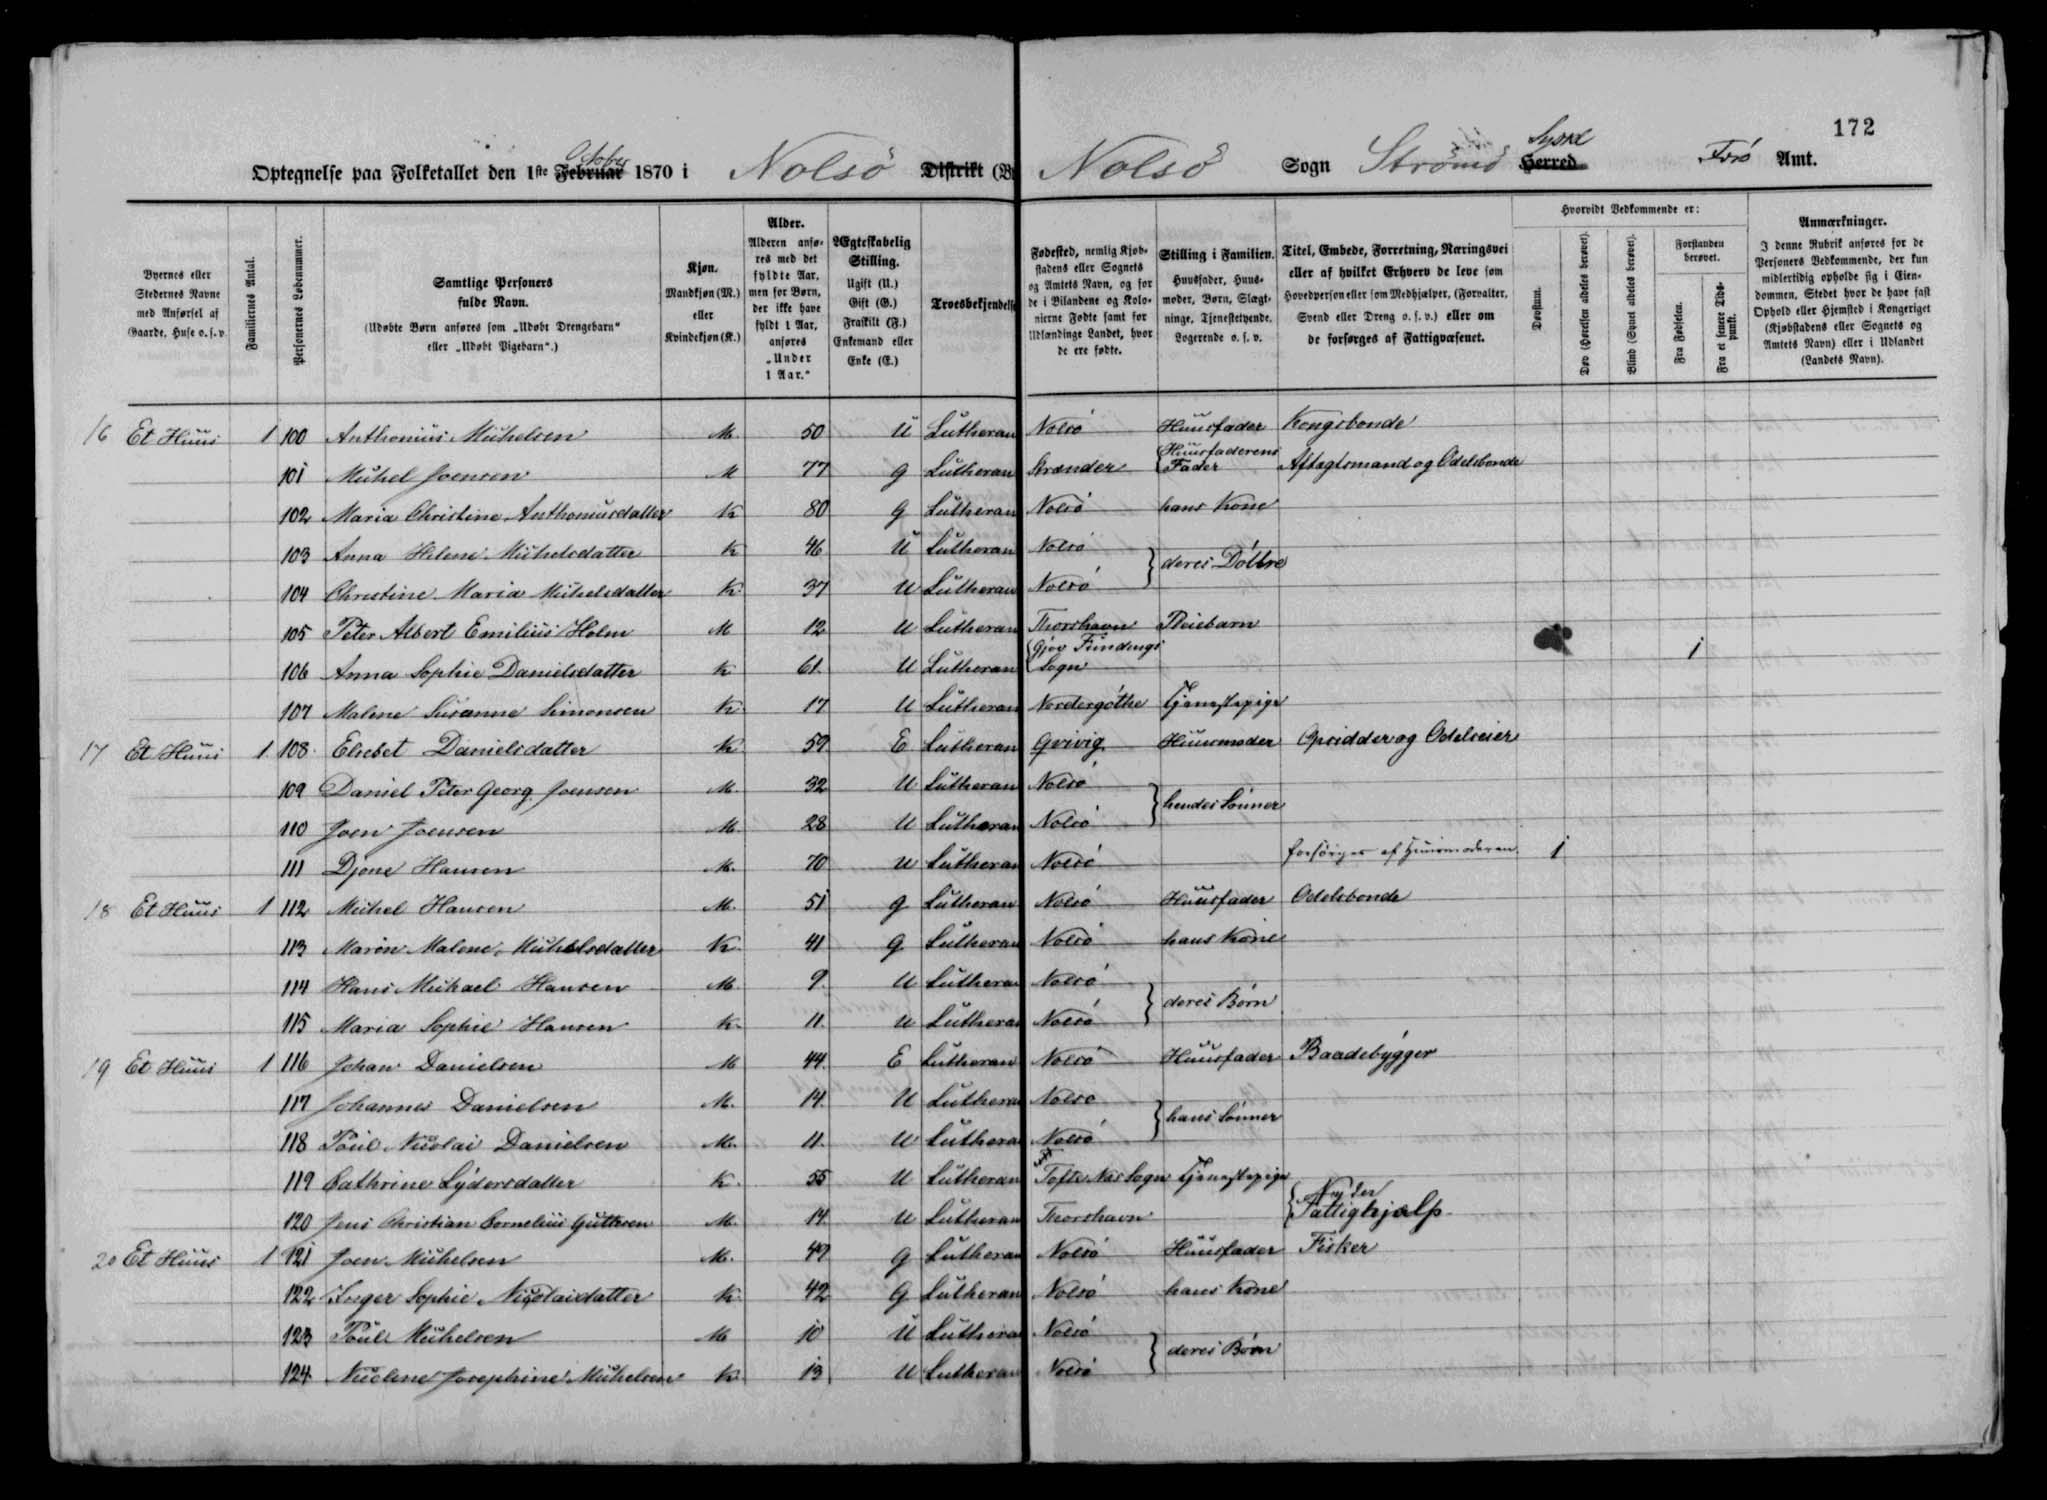 172
Optegnelse paa Folketallet den 1ste October Februar 1870 i Nolsö Distrikt Nolsö Sogn Strömö Syssel Herred Færö Amt.
Byernes eller Stedernes Navne med Anførsel af Gaarde, Huse o. s. v.
Familiernes Antal.
Personernes Løbenummer.
Samtlige Personers fulde Navn.
(Udøbte Børn anføres som „Udøbt Drengebarn" eller „Udøbt Pigebarn".)
Kjøn. Mandkjøn (M.) eller Kvindekjøn (K.)
Alder. Alderen anføres med det fyldte Aar, men for Børn, der ikke have fyldt 1 Aar, anføres „Under 1 Aar."
Ægteskabelig Stilling. Ugift (U.) Gift (G.) Fraskilt (F.) Enkemand eller Enke (E.)
Troesbekjendelse
Fødested, nemlig Kjøbstadens eller Sognets og Amtets Navn, og for de i Bilandene og Kolonierne Fødte samt for Udlændinge Landet, hvor de ere fødte.
Stilling i Familien. Huusfader, Huusmoder, Børn, Slægtninge, Tjenestetyende, Logerende o. s. v.
Titel, Embede, Forretning, Næringsvei eller af hvilket Erhverv de leve som Hovedperson eller som Medhjælper, (Forvalter, Svend eller Dreng o. s. v.) eller om de forsørges af Fattigvæsenet.
Hvorvidt Vedkommende er:
Døvstum.
Døv (Hørelsen aldeles berøvet).
Blind (Synet aldeles berøvet).
Forstanden berøvet.
Fra Fødselen.
Fra et senere Tidspunkt.
Anmærkninger. I denne Rubrik anføres for de Personers Vedkommende, der kun midlertidig opholde sig i Eiendommen, Stedet hvor de have fast Ophold eller Hjemsted i Kongeriget (Kjøbstadens eller Sognets og Amtets Navn) eller i Udlandet (Landets Navn).
16 Et Huus 1 100 Anthonius Michelsen M. 50 U Lutheran Nolsö Huusfader Kongsbonde
101 Michel Joensen M 77 G Lutheran Strænder Huusfaderens Fader Aftægtsmand og Odelsbonde
102 Maria Christine Anthoniusdatter K 80 G Lutheran Nolsö hans Kone
103 Anna Helene Michelsdatter K 46 U Lutheran Nolsö } deres Döttre
104 Christine Maria Michelsdatter K 37 U Lutheran Nolsö
105 Peter Albert Emilius Holm M 12 U Lutheran Thorshavn Pleiebarn
106 Anna Sophie Danielsdatter K 61. U Lutheran { Gjov Fundings Sogn 1
107 Malene Susanne Simonsen K 17 U Lutheran Nordergöthe Tjenestepige
17 Et Huus 1. 108. Elsebet Danielsdatter K. 59 E Lutheran Qvivig Huusmoder Opsidder og Odelseier
109 Daniel Peter Georg Joensen M. 32 U Lutheran Nolsö } hendes Sönner
110 Joen Joensen M. 28 U Lutheran Nolsö
111 Djone Hansen M. 70 U Lutheran Nolsö forsörges af Huusmoderen. 1
18 Et Huus 1 112 Michel Hansen M. 51 G Lutheran Nolsö Huusfader Odelsbonde
113 Maren Malene Michelsdatter K. 41 G Lutheran Nolsö hans Kone
114 Hans Michael Hansen M. 9. U Lutheran Nolsö } deres Börn
115 Maria Sophie Hansen K. 11. U Lutheran Nolsö
19 Et Huus 1 116 Johan Danielsen M 44. E Lutheran Nolsö Huusfader Baadebygger
117 Johannes Danielsen M. 14. U Lutheran Nolsö } hans Sönner
118 Poul Nicolai Danielsen M. 11. U Lutheran Nolsö
119 Cathrine Lydersdatter K. 55 U Lutheran Tofte Nes Sogn Tjenestepige
120 Jens Christian Cornelius Guttesen M. 14. U Lutheran Thorshavn { Nyder Fattighjælp
20 Et Huus 1 121 Joen Michelsen M. 47 G Lutheran Nolsö Huusfader Fisker
122 Inger Sophie Nicolaidatter K 42 G Lutheran Nolsö hans Kone
123 Poul Michelsen M 10 U Lutheran Nolsö } deres Börn
124 Nicoline Josephine Michelsen K 13 U Lutheran Nolsö